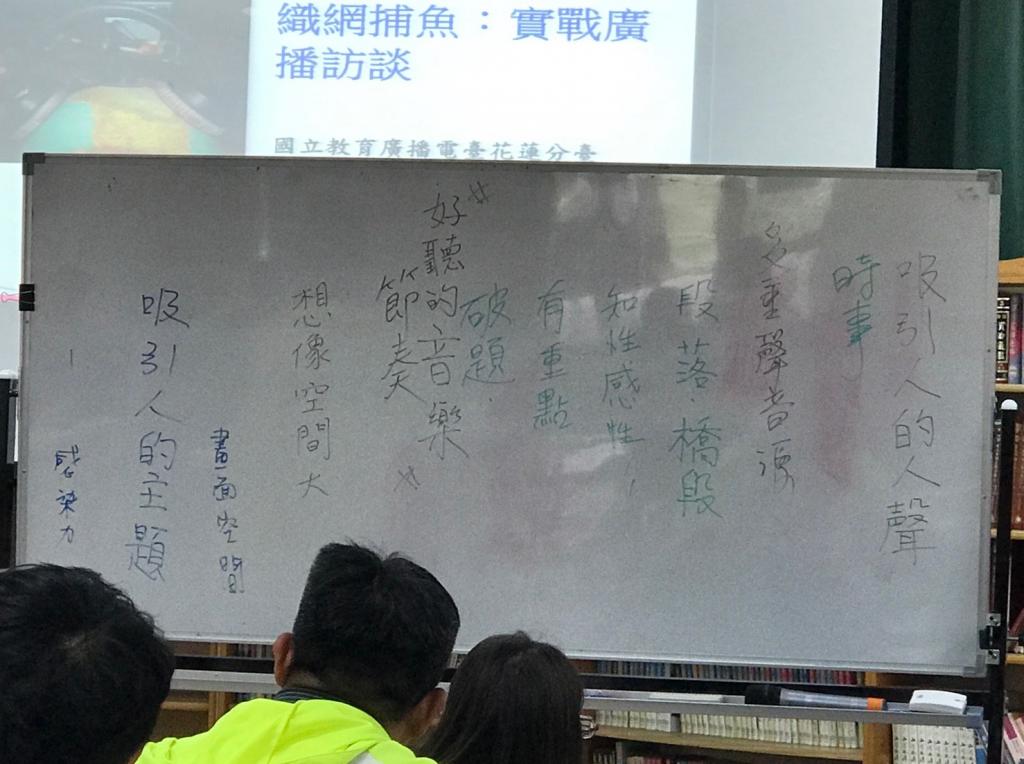 織網捕魚：實戰廣
播訪談
國立教育廣播電臺花蓮分臺
吸引人的人聲
時事
多重聲音源
段落.橋段
知性感性
有重點
破題.
好聽的音樂
節奏
想像空間大
畫面空間
吸引人的主題
感染力